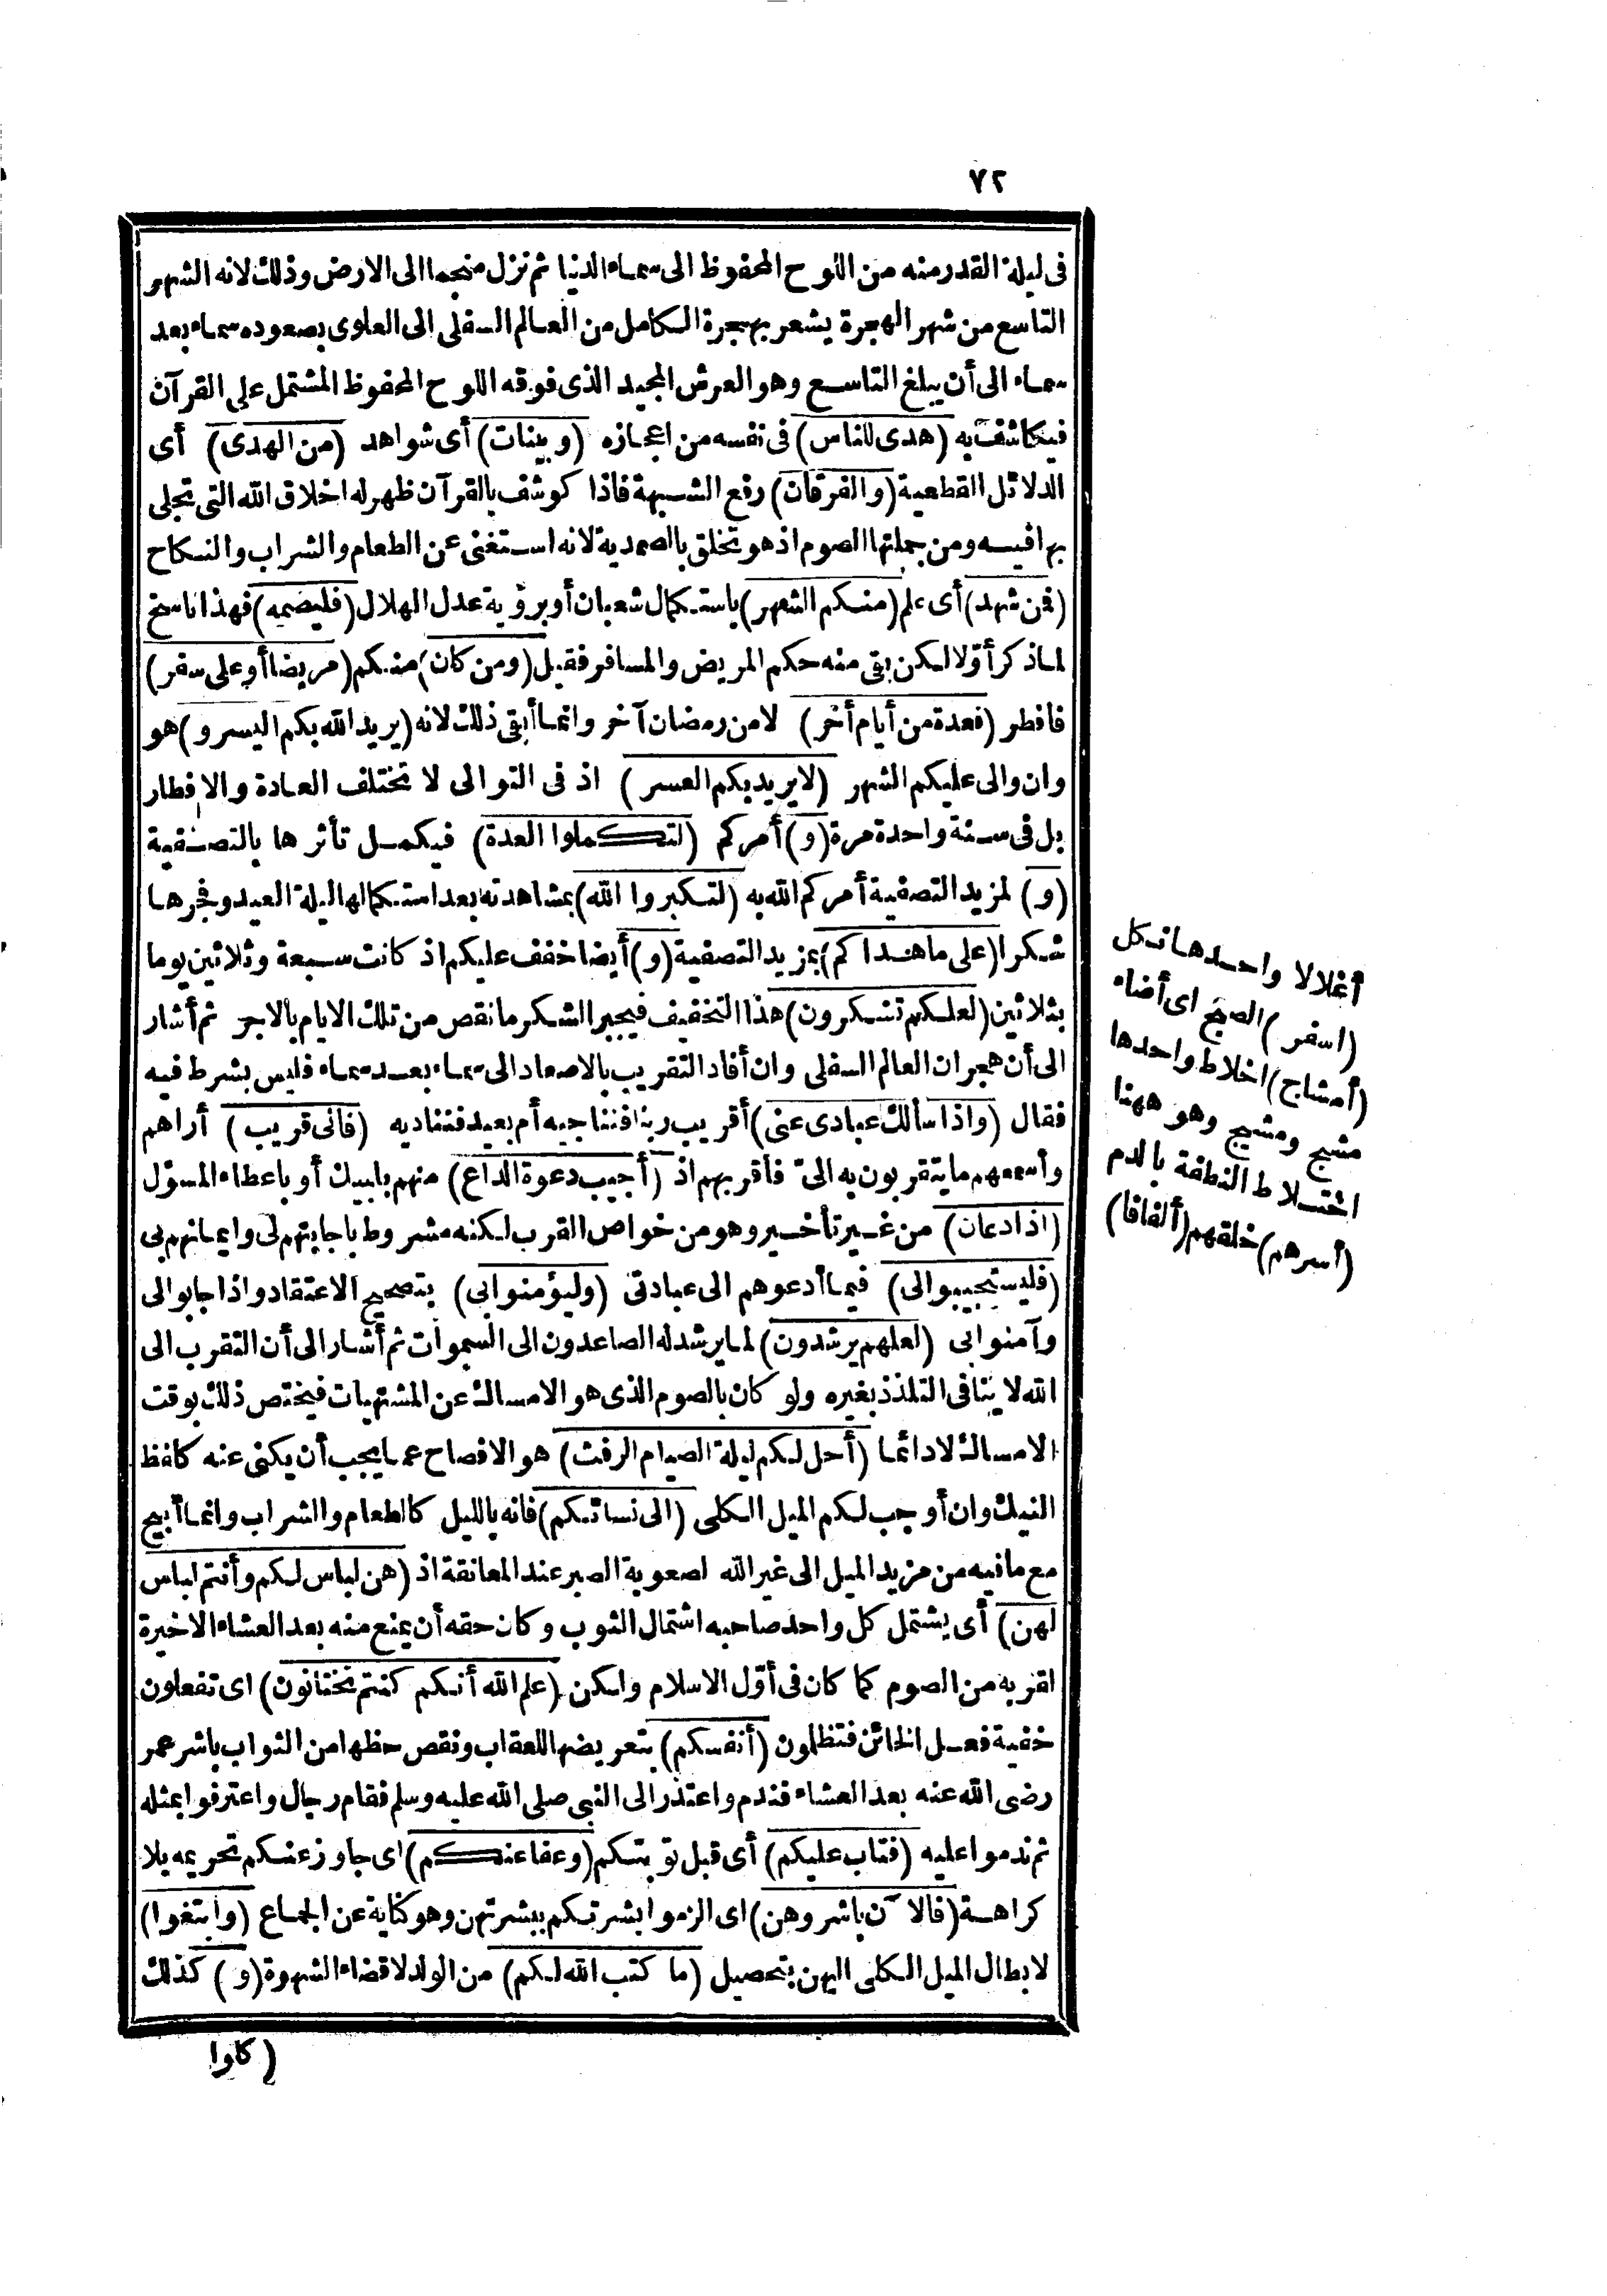 ٧٢
فى ليلة القدر منه من اللوح المحفوظ الى سماء الدنيا ثم نزل منجما الى الارض وذلك لانه الشهر
التاسع من شهر الهجرة يشعر بهجرة الكامل من العالم السفلى الى العلوى بصعوده سماء بعد
سماء الى أن يبلغ التاسع وهو العرش المجيد الذى فوقه اللوح المحفوظ المشتمل على القرآن
فيكاشف به (هدى للناس) فى نفسه من اعجازه (وبينات) أى شواهد (من الهدى) أى
الدلائل القطعية (والفرقان) رفع الشبهة فاذا كوشف بالقرآن ظهر له اخلاق الله التى تجلى
بها فيه ومن جملتها الصوم اذ هو تخلق بالصمدية لانه استغنى عن الطعام والشراب والنكاح
(فمن شهد) أى علم (منكم الشهر) باستكمال شعبان أو برؤية عدل الهلال (فليصمه) فهذا ناسخ
لما ذكر أوّلا لكن بقى منه حكم المريض والمسافر فقيل (ومن كان) منكم (مريضا أو على سفر)
فأفطر (فعدة من أيام أخر) لا من رمضان آخر وانما أبقى ذلك لانه (يريد الله بكم اليسر و) هو
وان والى عليكم الشهر (لا يريد بكم العسر) اذ فى التوالى لا تختلف العادة والافطار
بل فى سنة واحدة مرة (و) أمركم (لتكملوا العدة) فيكمل تأثرها بالتصفية
(و) لمزيد التصفية أمركم الله به (لتكبروا الله) بمشاهدته بعد استكمالها ليلة العيد وفجرها
شكرا (على ما هداكم) بمزيد التصفية (و) أيضا خفف عليكم اذ كانت سبعة وثلاثين يوما
بثلاثين (لعلكم تشكرون) هذا التخفيف فيجبر الشكر ما نقص من تلك الايام بالاجر ثم أشار
الى أن هجران العالم السفلى وان أفاد التقريب بالاصعاد الى سماء بعد سماء فليس بشرط فيه
فقال (واذا سألك عبادى عنى) أقريب ربنا فنناجيه أم بعيد فنناديه (فانى قريب) أراهم
وأسمعهم ما يتقربون به الىّ فأقربهم اذ (أجيب دعوة الداع) منهم بلبيك أو باعطاء المسؤل
(اذا دعان) من غير تأخير وهو من خواص القرب لكنه مشروط باجابتهم لى وايمانهم بى
(فليستجيبوا لى) فيما أدعوهم الى عبادتى (وليؤمنوا بى) بتصحيح الاعتقاد واذا جابوا لى
وآمنوا بى (لعلهم يرشدون) لما يرشد له الصاعدون الى السموات ثم أشار الى أن التقرب الى
الله لا ينافى التلذذ بغيره ولو كان بالصوم الذى هو الامساك عن المشتهيات فيختص ذلك بوقت
الامساك لا دائما (أحل لكم ليلة الصيام الرفث) هو الافصاح عما يجب أن يكنى عنه كلفظ
النيك وان أوجب لكم الميل الكلى (الى نسائكم) فانه بالليل كالطعام والشراب وانما أبيح
مع ما فيه من مزيد الميل الى غير الله لصعوبة الصبر عند المعانقة اذ (هن لباس لكم وأنتم لباس
لهن) أى يشتمل كل واحد صاحبه اشتمال الثوب وكان حقه أن يمنع منه بعد العشاء الاخيرة
لقربه من الصوم كما كان فى أوّل الاسلام ولكن (علم الله أنكم كنتم تختانون) اى تفعلون
خفية فعل الخائن فتظلمون (أنفسكم) بتعريضها للعقاب ونقص حظها من الثواب باشر عمر
رضى الله عنه بعد العشاء فندم واعتذر الى النبى صلى الله عليه وسلم فقام رجال واعترفوا بمثله
ثم ندموا عليه (فتاب عليكم) أى قبل توبتكم (وعفا عنكم) اى جاوز عنكم تحريمه بلا
كراهة (فالآن باشروهن) اى الزموا بشرتكم ببشرتهن وهو كناية عن الجماع (وابتغوا)
لابطال الميل الكلى اليهن بتحصيل (ما كتب الله لكم) من الولد لا قضاء الشهوة (و) كذلك
(كلوا
أغلالا واحدها نكل
(اسفر) الصبح اى أضاء
(أمشاج) اخلاط واحدها
مشج ومشيج وهو ههنا
اختلاط النطفة بالدم
(أسرهم) خلقهم (ألفافا)